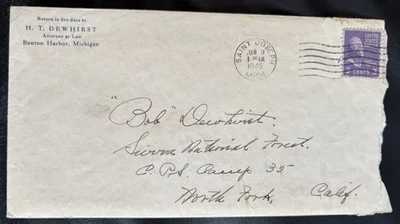 Return in five days to
H. T. DEWHIRST
Attorney at Law
Benton Harbor, Michigan
SAINT JOSEPH
JUN 9
1-AM
1945
MICH.
UNITED STATES
CENTS
"Bob" Dewhirst.
Sierra National Forest.
C. P. S. Camp 35
North Fork, Calif.